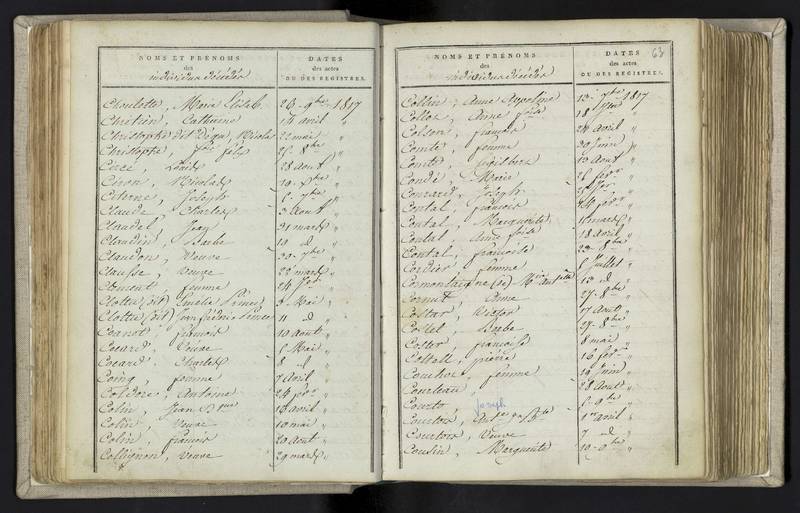 NOMS ET PRÉNOMS
des
individus décédés
DATES
des actes
OU DES REGISTRES.
Choulotte, Marie Elisab. 26 9bre 1817
Chrétien, Catherine 14 avril "
Christophe dit Nicolas 22 mai "
Christophe, Jos. félix 25 8bre "
Circé, Louis 28 aout "
Ciron, Nicolas 19 Xbre "
Citerne, Joseph 5 7bre "
Claude, Charles 3 aout "
Claudel, Jean 31 mars "
Claudin, Barbe 19 d "
Claudon, Veuve 30 7bre "
Clausse, Veuve 22 mars "
Clément, femme 24 "
Clotte (dit) Amélie 3 Mai "
Clotte (dit) Jean frédéric 11 d "
Coanot, françois 10 aout "
Cocard, Veuve 5 Mai "
Cocard, Charles 8 d "
femme 7 Avril "
Antoine 24 févr "
Colin, Jean Bque 13 avril "
Colin, Veuve 10 mai "
Colin, françois 20 aout "
Collignon, Veuve 29 mars "
NOMS ET PRÉNOMS
des
individus décédés
DATES 63
des actes
OU DES REGISTRES.
Collin, Anne Appoline 13 7bre 1817
Anne 18 "
Colson, françois 24 avril "
Comte, femme 30 Juin "
Comte, 13 Aout "
Condé, Marie 26 févr "
Conrard, Joseph 25 "
Contal, françois 24 févr "
Contal, Marguerite 16 mars "
Contal, Anne foise 18 avril "
Contal, françoise 23 8bre "
Cordier, femme 5 Juillet "
Cormontaigne (de) 13 d "
Cornut, Anne 27 8bre "
Costar, Victor 17 Aout "
Barbe 27 8bre "
françoise 8 mai "
pierre 16 févr "
femme 19 Juin "
Courteau, 28 Aout "
Courto Joseph 5 9bre "
Courtois, 1er avril "
Courtois, Veuve 7 d "
Cousin, Marguerite 10 9bre "